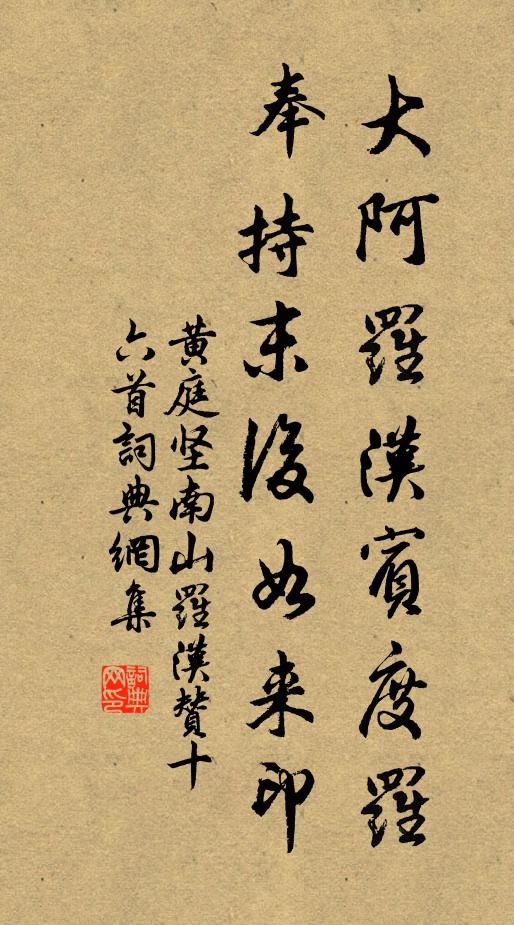 大阿羅漢賓度羅
奉持末後如来印
黄庭坚南山羅漢賛十
六首詞典網集
詞典
网印